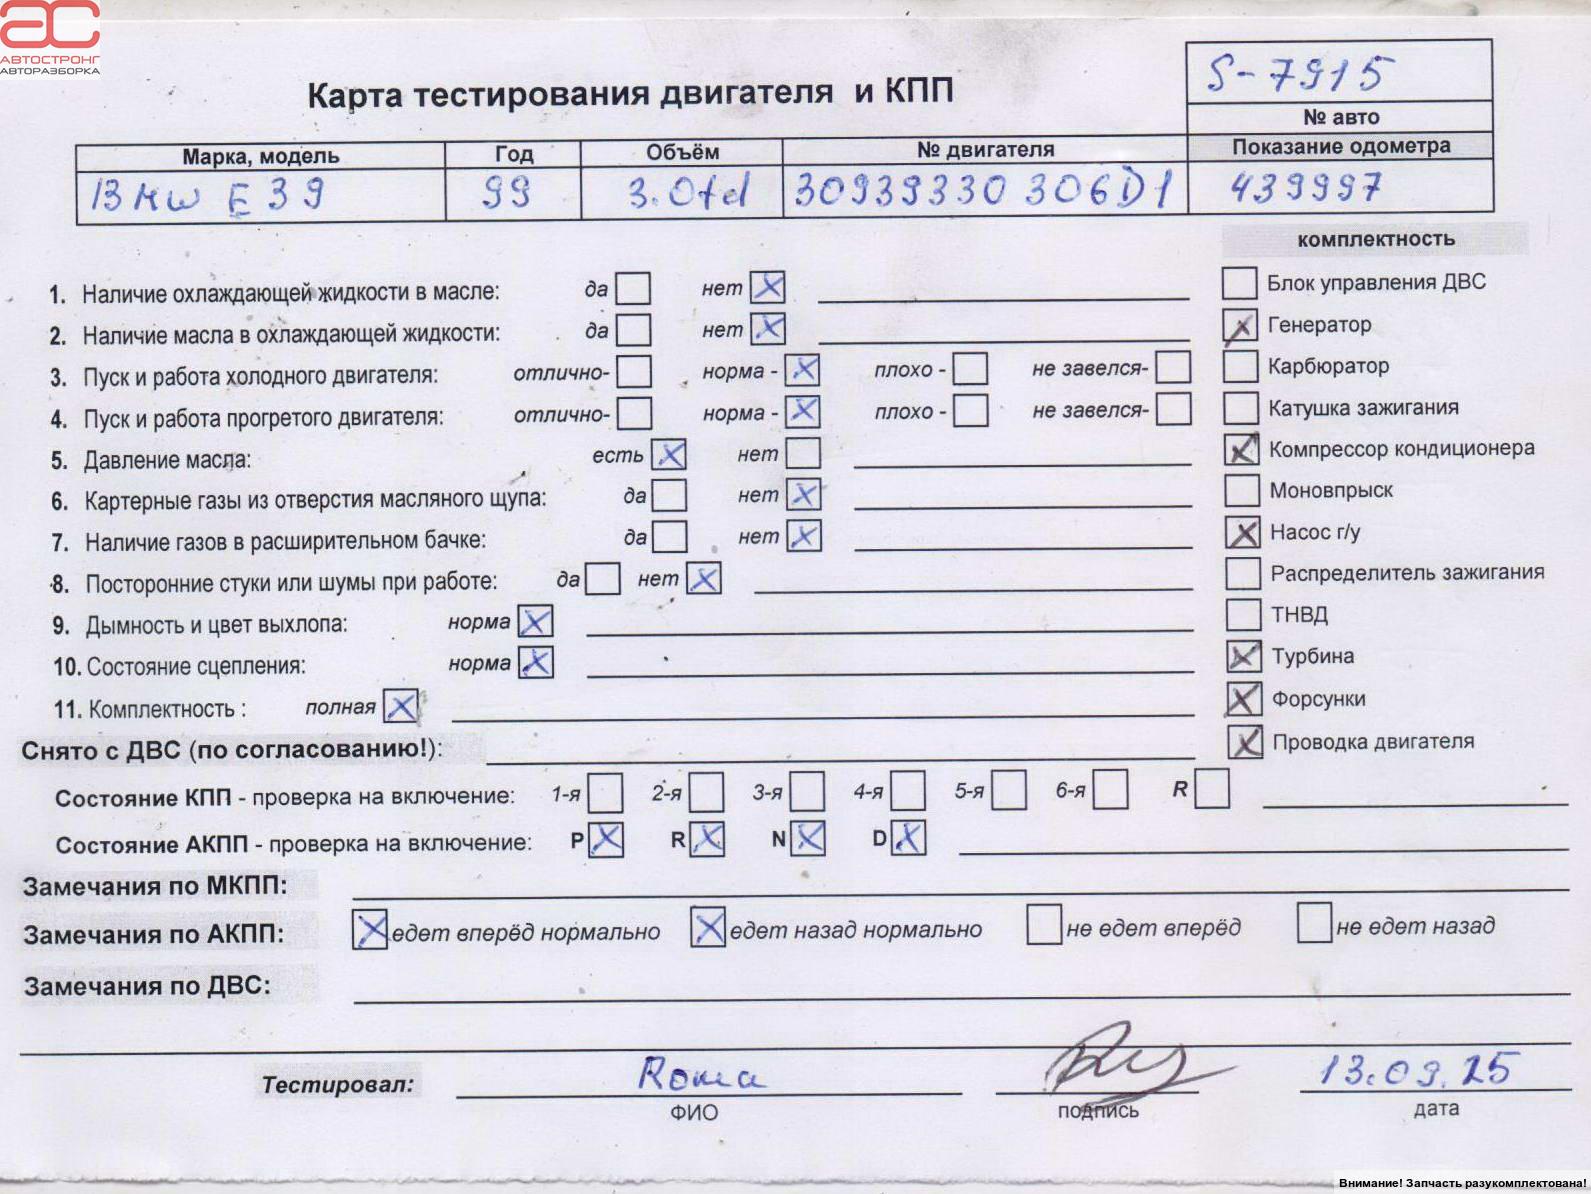 АС
АВТОСТРОНГ
АВТОРАЗБОРКА
Карта тестирования двигателя и КПП
S-7915
№ авто
Марка, модель Год Объём № двигателя Показание одометра
BMW E39 99 3.0td 30939330 306D1 439997
комплектность
1. Наличие охлаждающей жидкости в масле: да нет
2. Наличие масла в охлаждающей жидкости: да нет
3. Пуск и работа холодного двигателя: отлично- норма - плохо - не завелся-
4. Пуск и работа прогретого двигателя: отлично- норма - плохо - не завелся-
5. Давление масла: есть нет
6. Картерные газы из отверстия масляного щупа: да нет
7. Наличие газов в расширительном бачке: да нет
8. Посторонние стуки или шумы при работе: да нет
9. Дымность и цвет выхлопа: норма
10. Состояние сцепления: норма
11. Комплектность : полная
Блок управления ДВС
Генератор
Карбюратор
Катушка зажигания
Компрессор кондиционера
Моновпрыск
Насос г/у
Распределитель зажигания
ТНВД
Турбина
Форсунки
Проводка двигателя
Снято с ДВС (по согласованию!):
Состояние КПП - проверка на включение: 1-я 2-я 3-я 4-я 5-я 6-я R
Состояние АКПП - проверка на включение: P R N D
Замечания по МКПП:
Замечания по АКПП: едет вперёд нормально едет назад нормально не едет вперёд не едет назад
Замечания по ДВС:
Тестировал: Roma 13.09.25
ФИО подпись дата
Внимание! Запчасть разукомплектована!